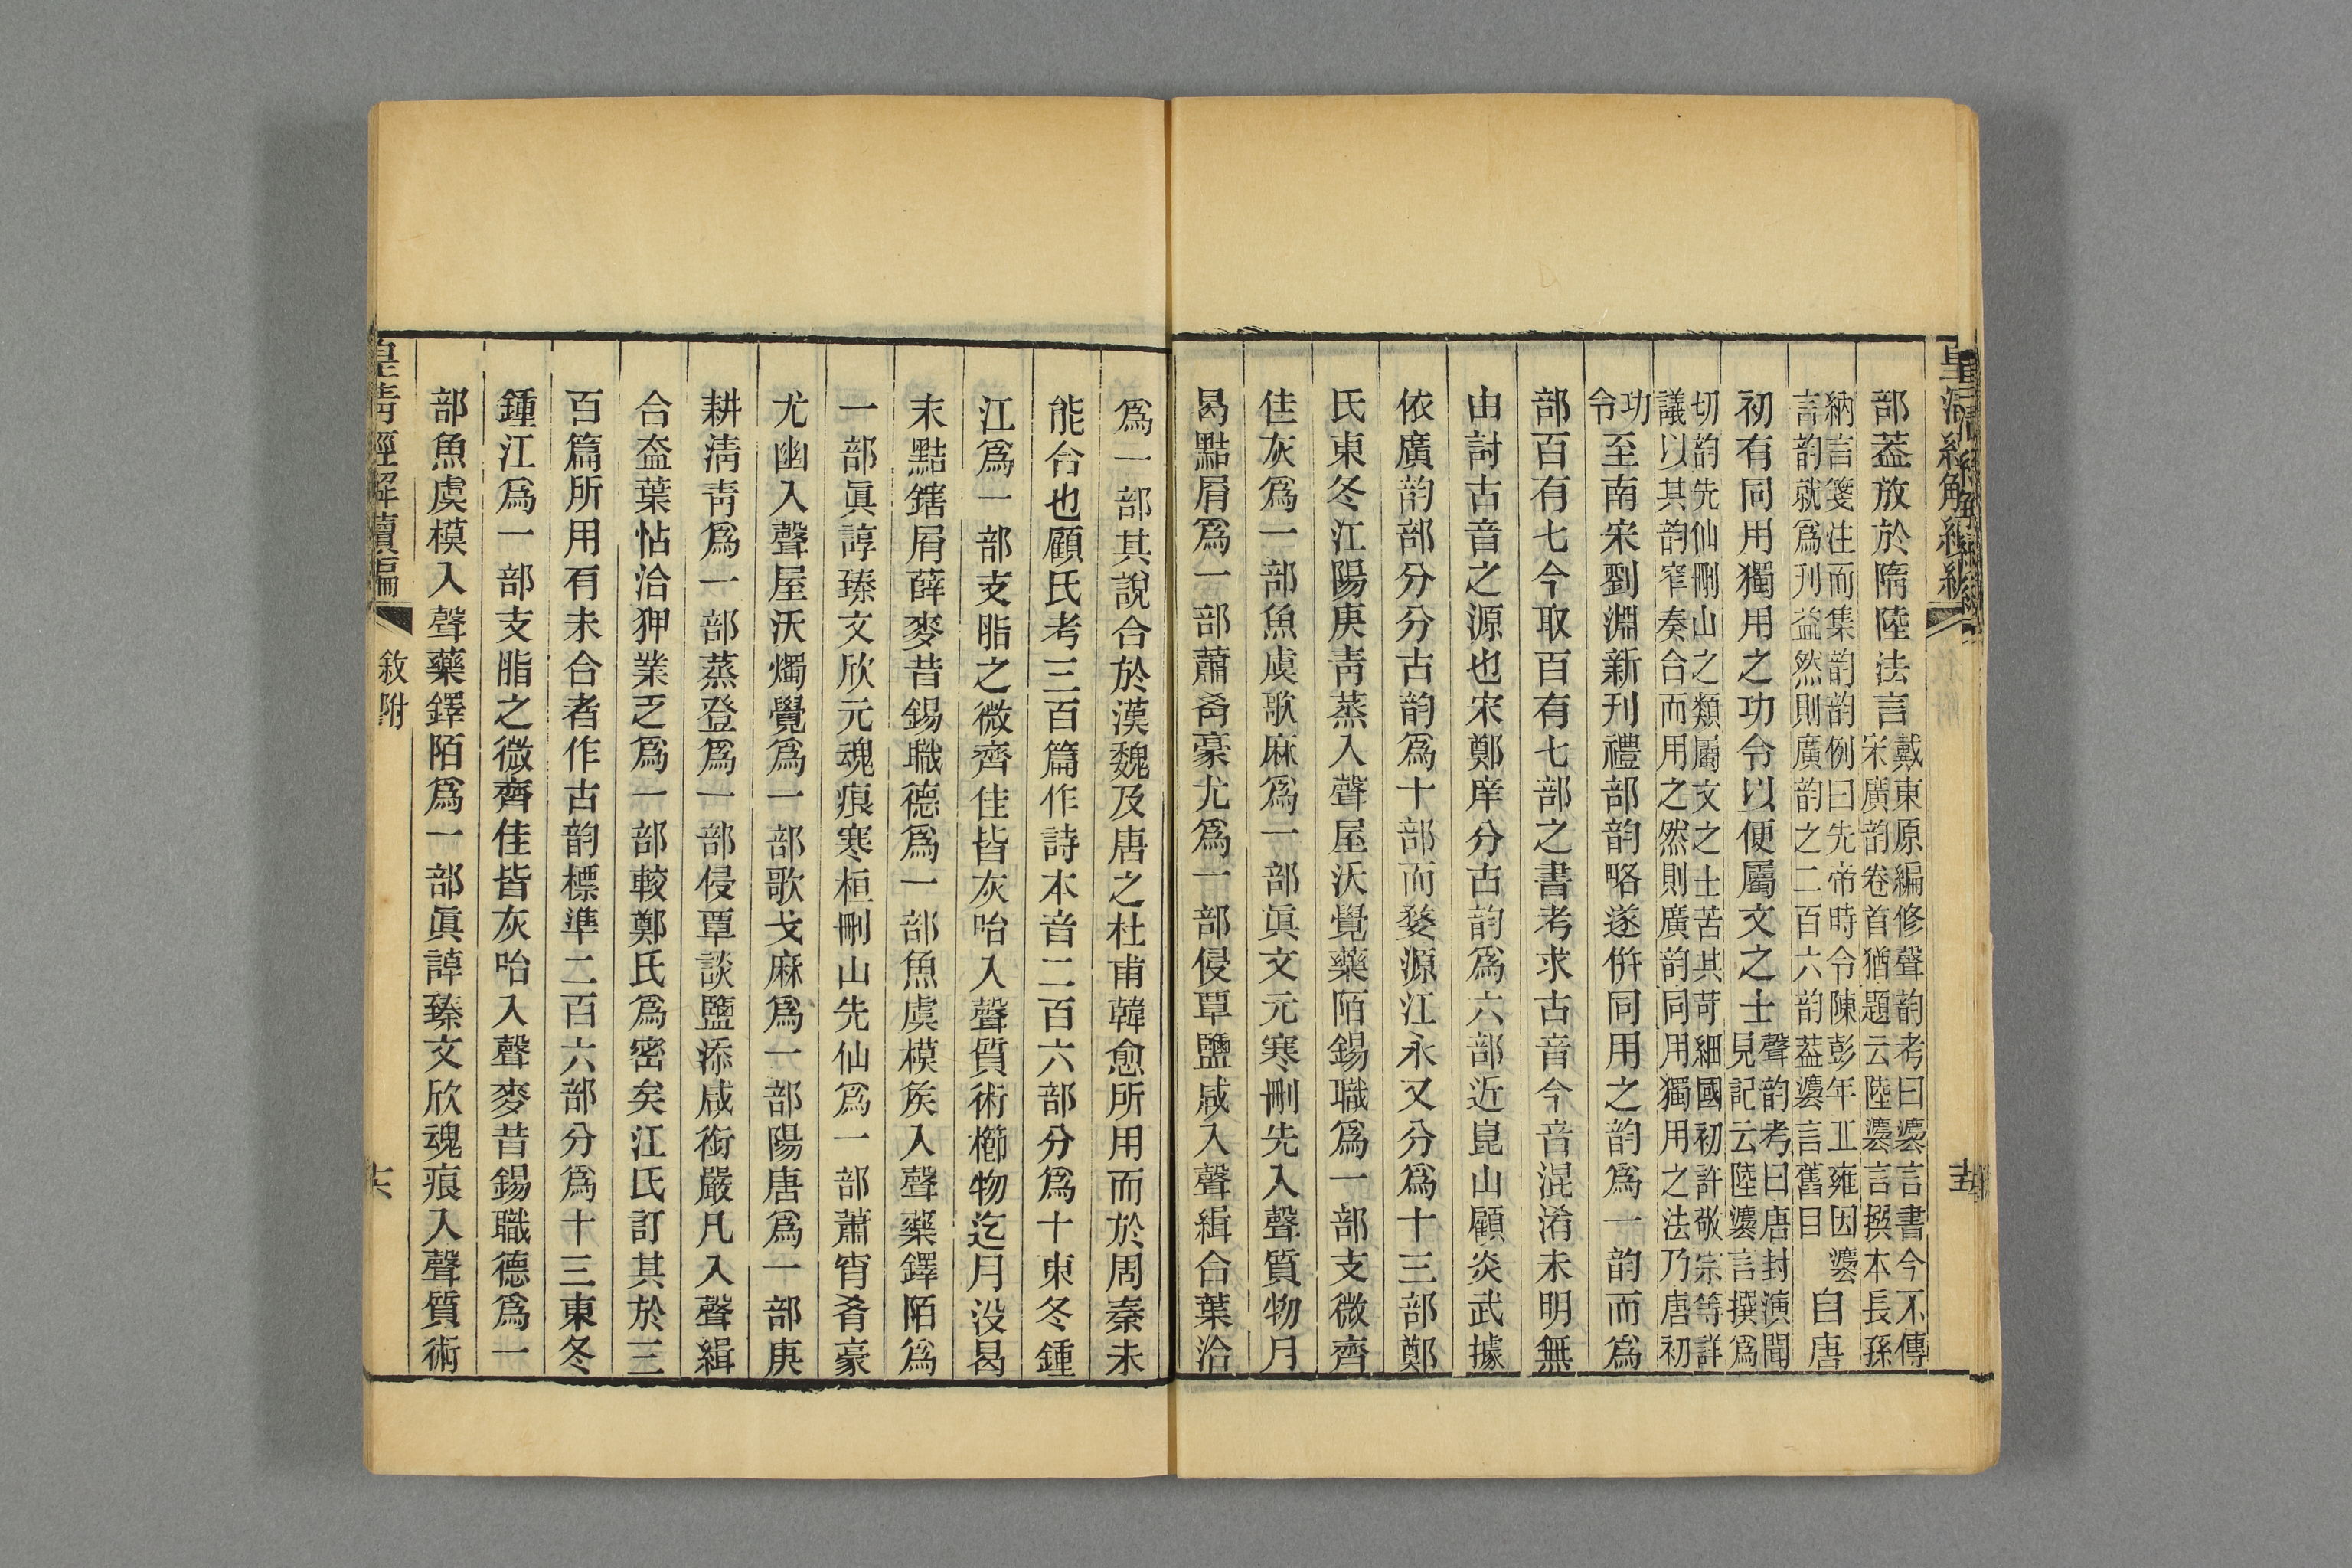 部葢放於隋陸法言戴東原編修聲韵考曰灋言書今不傳
宋廣韵卷首猶題云陸灋言撰本長孫
納言箋注而集韵韵例曰先帝時令陳彭年丠雍因灋
言韵就爲刋益然則廣韵之二百六韵葢灋言舊目自唐
初有同用獨用之功令以便屬文之士聲韵考曰唐封演聞
見記云陸灋言撰爲
切韵先仙刪山之類屬文之士苦其苛細國初許敬宗等詳
議以其韵窄奏合而用之然則廣韵同用獨用之法乃唐初
功
令至南宋劉淵新刊禮部韵略遂倂同用之韵爲一韵而爲
部百有七今取百有七部之書考求古音今音混淆未明無
由討古音之源也宋鄭庠分古韵爲六部近崑山顧炎武據
依廣韵部分分古韵爲十部而婺源江永又分爲十三部鄭
氏東冬江陽庚青蒸入聲屋沃覺藥陌錫職爲一部支微齊
佳灰爲一部魚虞歌麻爲一部眞文元寒刪先入聲質物月
曷黠屑爲一部蕭肴豪尤爲一部侵覃鹽咸入聲緝合葉洽
爲一部其說合於漢魏及唐之杜甫韓愈所用而於周秦未
能合也顧氏考三百篇作詩本音二百六部分爲十東冬鍾
江爲一部支脂之微齊佳皆灰咍入聲質術櫛物迄月没曷
末黠鎋屑薛麥昔錫職德爲一部魚虞模矦入聲藥鐸陌爲
一部眞諄臻文欣元魂痕寒桓刪山先仙爲一部蕭宵肴豪
尤幽入聲屋沃燭覺爲一部歌戈麻爲一部陽唐爲一部庚
耕淸靑爲一部蒸登爲一部侵覃談鹽添咸銜嚴凡入聲緝
合盍葉怗洽狎業乏爲一部較鄭氏爲密矣江氏訂其於三
百篇所用有未合者作古韵標準二百六部分爲十三東冬
鍾江爲一部支脂之微齊佳皆灰咍入聲麥昔錫職德爲一
部魚虞模入聲藥鐸陌爲一部眞諄臻文欣魂痕入聲質術
皇淸經解續編
敘附